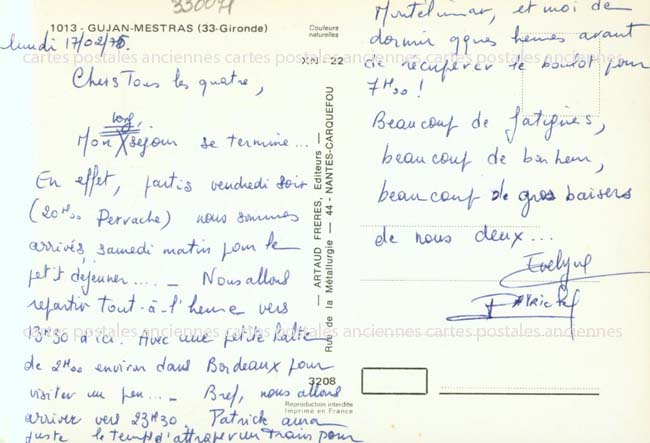 330071
1013 - GUJAN-MESTRAS (33-Gironde)
Couleurs
naturelles
lundi 17/02/75.
XN - 22
Chers Tous les quatre,
long,
Mon séjour se termine...
En effet, partis vendredi soir
(20H00 Perrache) nous sommes
arrivés, samedi matin pour le
petit déjeuner.... - Nous allons
repartir tout-à-l'heure vers
13H30 d'ici. Avec une petite halte
de 2H00 environ dans Bordeaux pour
visiter un peu... - Bref, nous allons
arriver vers 23H30. Patrick aura
juste le temps d'attraper un train pour
ARTAUD FRERES, Editeurs —
Rue de la Métallurgie — 44 - NANTES-CARQUEFOU
3208
Reproduction interdite
Imprimé en France
Montélimar, et moi de
dormir qques heures avant
de récupérer le boulot pour
7H00 !
Beaucoup de fatigues,
beaucoup de bonheur,
beaucoup de gros baisers
de nous deux...
Evelyne
Patrick
cartes postales anciennes cartes postales anciennes cartes postales anciennes
cartes postales anciennes cartes postales anciennes cartes postales anciennes